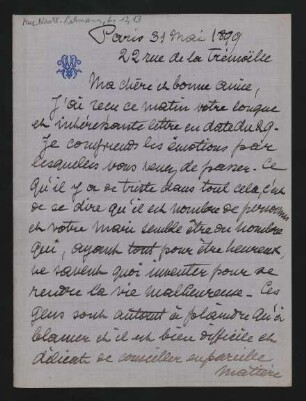 Paris 31 Mai 1899
22 rue de la Trémoïlle
Ma chère et bonne amie,
J'ai reçu ce matin votre longue
et intéressante lettre en date du 29.
Je comprends les émotions par
lesquelles vous venez de passer. Ce
qu'il y a de triste dans tout cela, c'est
de se dire qu'il est nombre de personnes
et votre mari semble être du nombre
qui, ayant tout pour être heureux
ne savent quoi inventer pour se
rendre la vie malheureuse. Ces
gens sont autant à plaindre qu'à
blâmer et il est bien difficile et
délicat de conseiller en pareille
matière